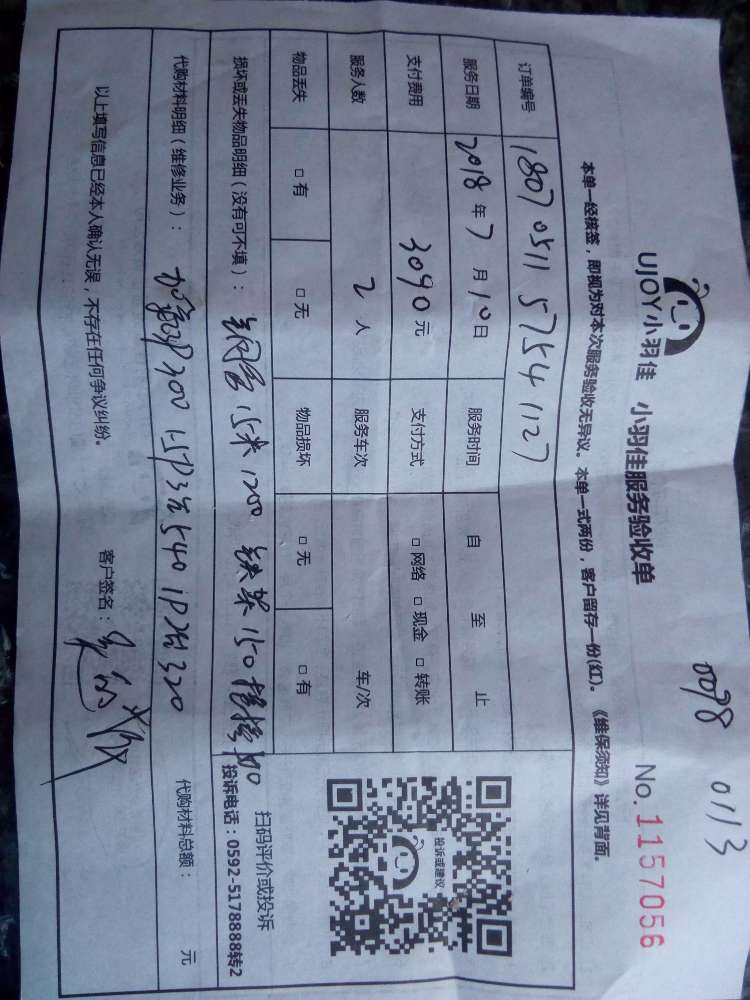 0098 0113
UJOY小羽佳 小羽佳服务验收单 No.1157056
本单一经核签，即视为对本次服务验收无异议。本单一式两份，客户留存一份(红)。《维保须知》详见背面。
订单编号 1807051157541127
服务日期 2018年7月10日 服务时间 自 至 止
支付费用 3090元 支付方式 □网络 □现金 □转账
服务人数 2人 服务车次 车/次
物品丢失 □有 □无 物品损坏 □无 □有
投诉或建议
扫码评价或投诉
投诉电话：0592-5178888转2
损坏或丢失物品明细（没有可不填）： 铜管15米1200 铁架150
代购材料明细（维修业务）： 300 1.5P3台540 1P2台320 代购材料总额： 元
以上填写信息已经本人确认无误，不存在任何争议纠纷。 客户签名：